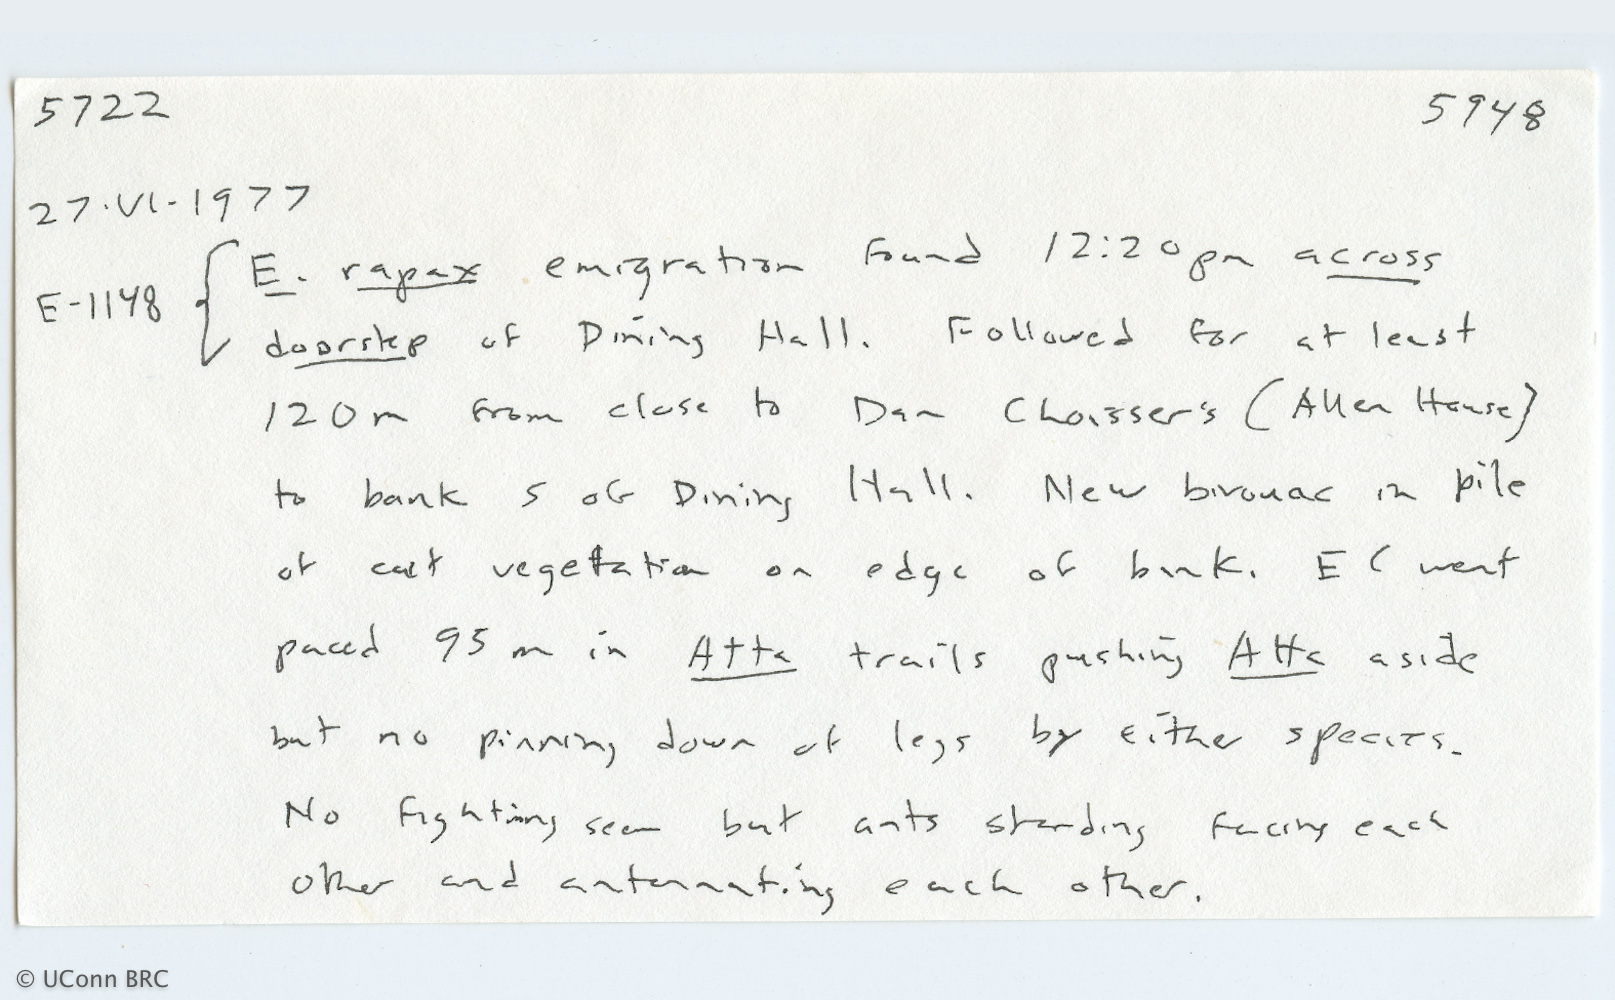 5722 5948
27.VI-1977
E. rapax emigration found 12:20pm across
E-1148
doorstep of Dining Hall. Followed for at least
120m from close to Dan Choisser's (Allen House)
to bank S of Dining Hall. New bivouac in pile
of cut vegetation on edge of bank. EC went
paced 95m in Atta trails pushing Atta aside
but no pinning down of legs by either species.
No fighting seen but ants standing facing each
other and antennating each other.
© UConn BRC